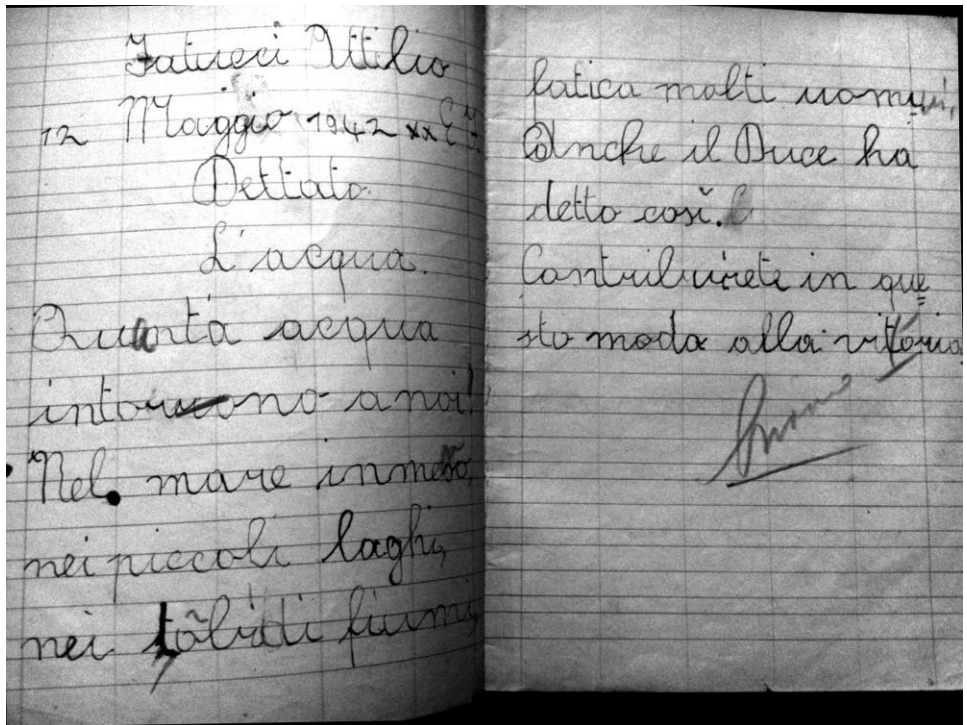 Fatucci Attilio
12 Maggio 1942 XX E.F.
Dettato.
L'acqua.
Quanta acqua
intorno a noi!
Nel mare inmenso,
nei piccoli laghi,
nei torbidi fiumi,
fatica molti uomini,
Anche il Duce ha
detto così.
Contribuirete in que
sto modo alla vittoria